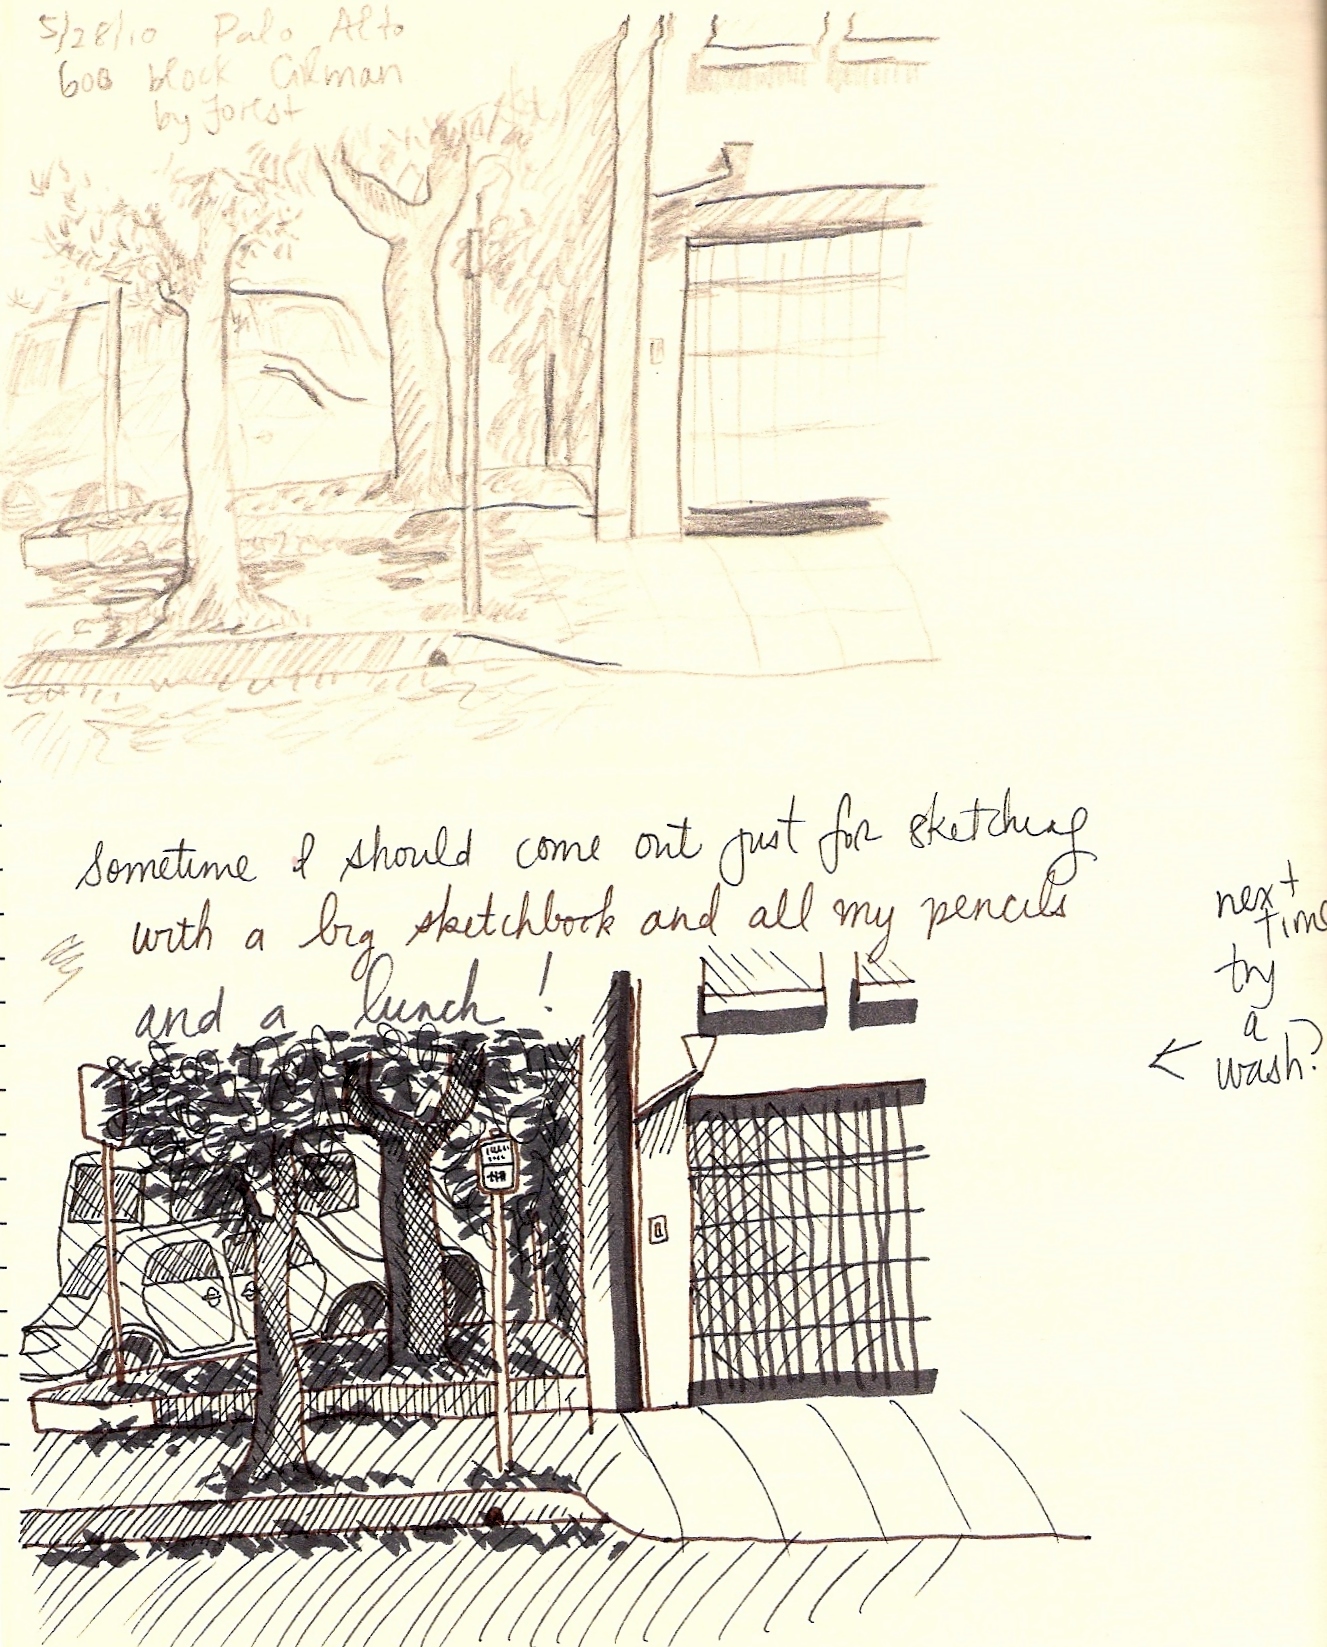 5/28/10 Palo Alto
600 block Gilman
by Forest
Sometime I should come out just for sketching
with a big sketchbook and all my pencils
and a lunch!
next
time
try
a
← wash?